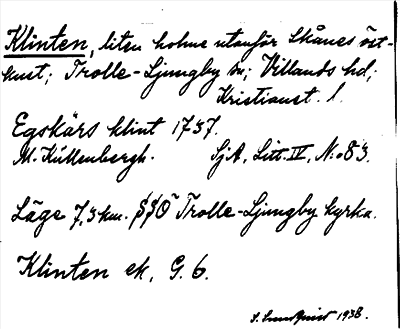 Klinten, liten holme utanför Skånes öst-
kust; Trolle-Ljungby sn; Villands hd;
Kristianst. l.
Egskärs klint 1737.
M. Küllenbergh. SjA, Litt. IV, N:o 83.
Läge 7,3 km. SSO Trolle-Ljungby kyrka.
Klinten ek. G. 6.
S. Sundquist 1938.